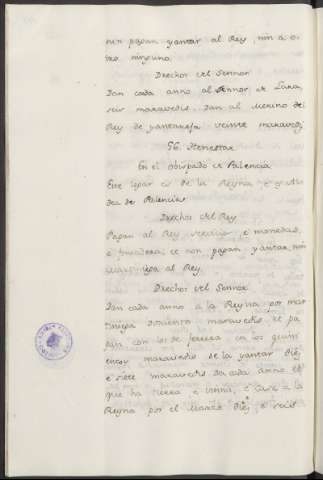 nin pagan yantar al Rey, nin a o-
tro ninguno.
Drechos del Sennor
Dan cada anno al Sennor de Lara,
seis maravedis. Dan al Merino del
Rey de yantareja veinte maraved.
56. Henestar
En el obispado de Palencia
Este logar es de la Reyna, e
dea de Palencia.
Drechos del Rey
Pagan al Rey servicio, e monedas,
e fonsadera, e non pagan yantar, nin
al Rey.
Drechos del Sennor.
Dan cada anno a la Reyna por mar-
tiniega maravedis, e pa-
gan con los de en los quini-
entos maravedis de la yantar diez
e siete maravedis. Da cada anno el
que ha tierra e a la
Reyna por el Marzo e seis